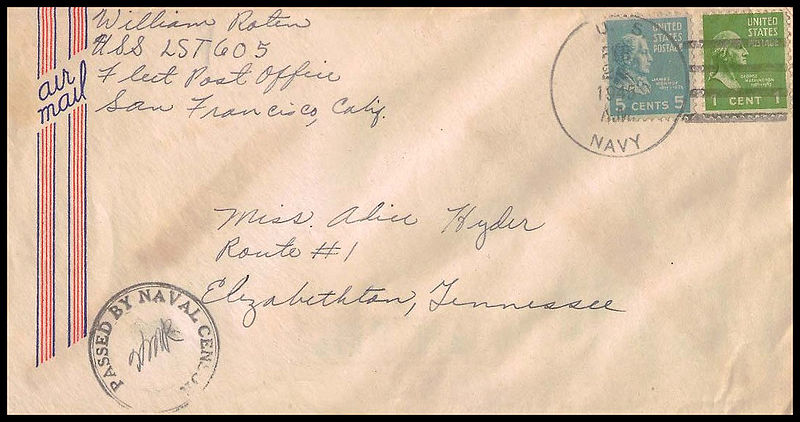 William Roten
USS LST 605
Fleet Post Office
San Francisco, Calif.
air
mail
U.S.
NAVY
UNITED
STATES
POSTAGE
JAMES
MONROE
5 CENTS 5
UNITED
STATES
POSTAGE
GEORGE
WASHINGTON
1 CENT 1
Miss. Alice Hyder
Route #1
Elizabethton, Tennessee
PASSED BY NAVAL CENSOR